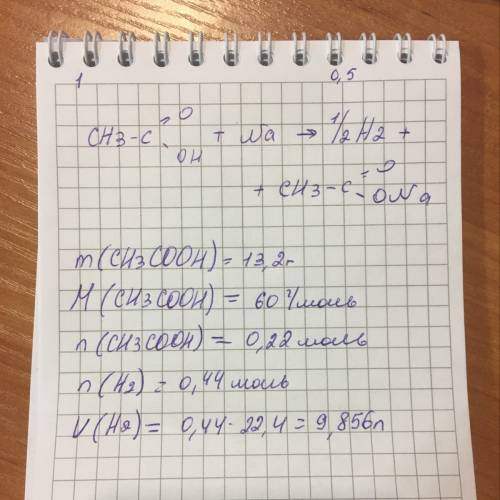 1 0,5
CH3-C =O OH + Na → 1/2 H2 +
+ CH3-C =O -ONa
m(CH3COOH) = 13,2г
M(CH3COOH) = 60 г/моль
n(CH3COOH) = 0,22 моль
n(H2) = 0,44 моль
V(H2) = 0,44·22,4 = 9,856л